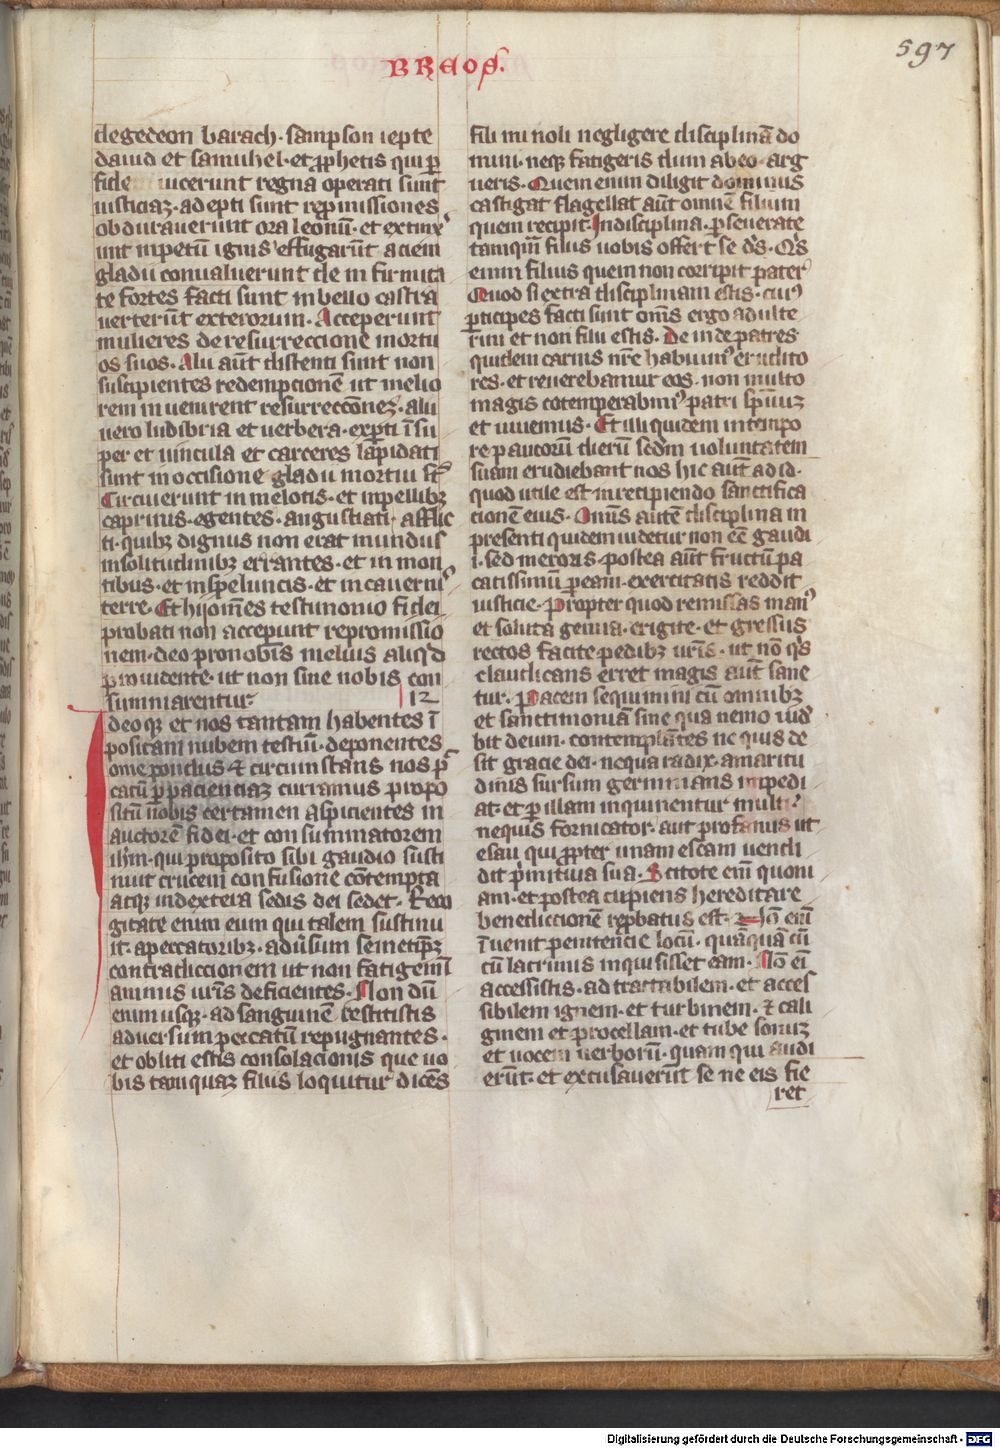 BREOS.
597
de gedeon barach · sampson iepte
dauid et samuhel · et ꝓphetis qui ꝑ
fidē uicerunt regna operati sunt
iusticiaꝫ · adepti sunt repͦmissiones
obdurauerunt ora leonū · et extinxͤ
unt inpetū ignis effugarūt aciem
gladii conualuerunt de infirmita
te fortes facti sunt in bello castra
uerterūt exterorum · Acceperunt
mulieres de resurreccione mortu
os suos · Alii aūt distenti sunt non
suscipientes redempcionē ut melio
rem inuenirent resurreccōneꝫ · alii
uero ludibria et uerbera · exꝑti īsu
per et uincula et carceres lapidati
sunt in occisione gladii mortui sͭ
Circuierunt in melotis · et inpellibꝫ
caprinis · egentes · angustiati · afflic
ti · quibꝫ dignus non erat mundus
insolitudinibꝫ errantes · et in mon
tibus · et inspeluncis · et in cauernis
terre · Et hij om̄es testimonio fidei
probati non acceperunt repromissio
nem · deo pro nobis melius aliqͥd
ꝓuidente · ut non sine nobis con
summarentur 12
Ideoqꝫ et nos tantam habentes ī
positam nubem testiū · deponentes
om̄e pondus et circumstans nos pͨ
catū ꝑ pacienciaꝫ curramus propo
situ nobis certamen aspicientes in
auctorē fidei · et consummatorem
ih̄m · qui proposito sibi gaudio susti
nuit crucem confusione cōtempta
atqꝫ indextera sedis dei sedet · Reco
gitate enim eum qui talem sustinu
it · apeccatoribꝫ · aduͥsum semetip̄ꝫ
contradiccionem ut non fatigemī
animis uris deficientes · Non dū
enim usqꝫ · ad sanguinē restitistis
aduersum peccatū repugnantes ·
et obliti estis consolacionis que uo
bis tamquaꝫ filiis loquitur dicēs
fili mi noli negligere disciplinā do
mini · neqꝫ fatigeris dum abeo arg
ueris · Quem enim diligit dominus
castigat flagellat aūt omnē filium
quem recipit · In disciplina ꝑseuerate
tamquā filiis uobis offert se dͤs · Qͥs
enim filius quem non corripit pater
Quod si extra disciplinam estis · cuiꝰ
ꝑticipes facti sunt om̄s ergo adulte
rini et non filii estis · De inde patres
quidem carnis nr̄e habuimꝰ erudito
res · et reuerebamur eos · non multo
magis cotemperabimꝰ patri spūuꝫ
et uiuemus · Et illi quidem in tempo
re paucorū dierū scdm uoluntatem
suam erudiebant nos hic aūt ad id ·
quod utile est inrecipiendo sanctifica
cionē eius · Omīs autē disciplina in
presenti quidem uidetur non eē gaudi
i · sed meroris · postea aūt fructū pa
catissimū ꝑ eam · exercitatis reddit
iusticie · Propter quod remissas manꝰ
et soluta genua · erigite · et gressus
rectos facite pedibꝫ uris · ut nō qͥs
claudicans erret magis aut̄ sane
tur · Pacem sequimini cū omnibꝫ
et sanctimoniā sine qua nemo uidͤ
bit deum · contemplātes ne quis de
sit gracie dei · nequa radix amaritu
dinis sursum germinans inpedi
at · et ꝑ illam inquinentur multi
nequis fornicator · aut profanus ut
esau qui ꝓpter unam escam uendi
dit pͥmitiua sua · Scitote enī quoni
am · et postea cupiens hereditare
benediccionē repͦbatus est · Nō enī
īuenit penitencie locū · quāquā cū
cū lacrimis inquisisset eam · Nō eī
accessistis · ad tractabilem · et acces
sibilem ignem · et turbinem · et cali
ginem et procellam · et tube sonuꝫ
et uocem uerborū · quam qui audi
erūt · et excusauerūt se ne eis fie
ret
Digitalisierung gefördert durch die Deutsche Forschungsgemeinschaft - DFG